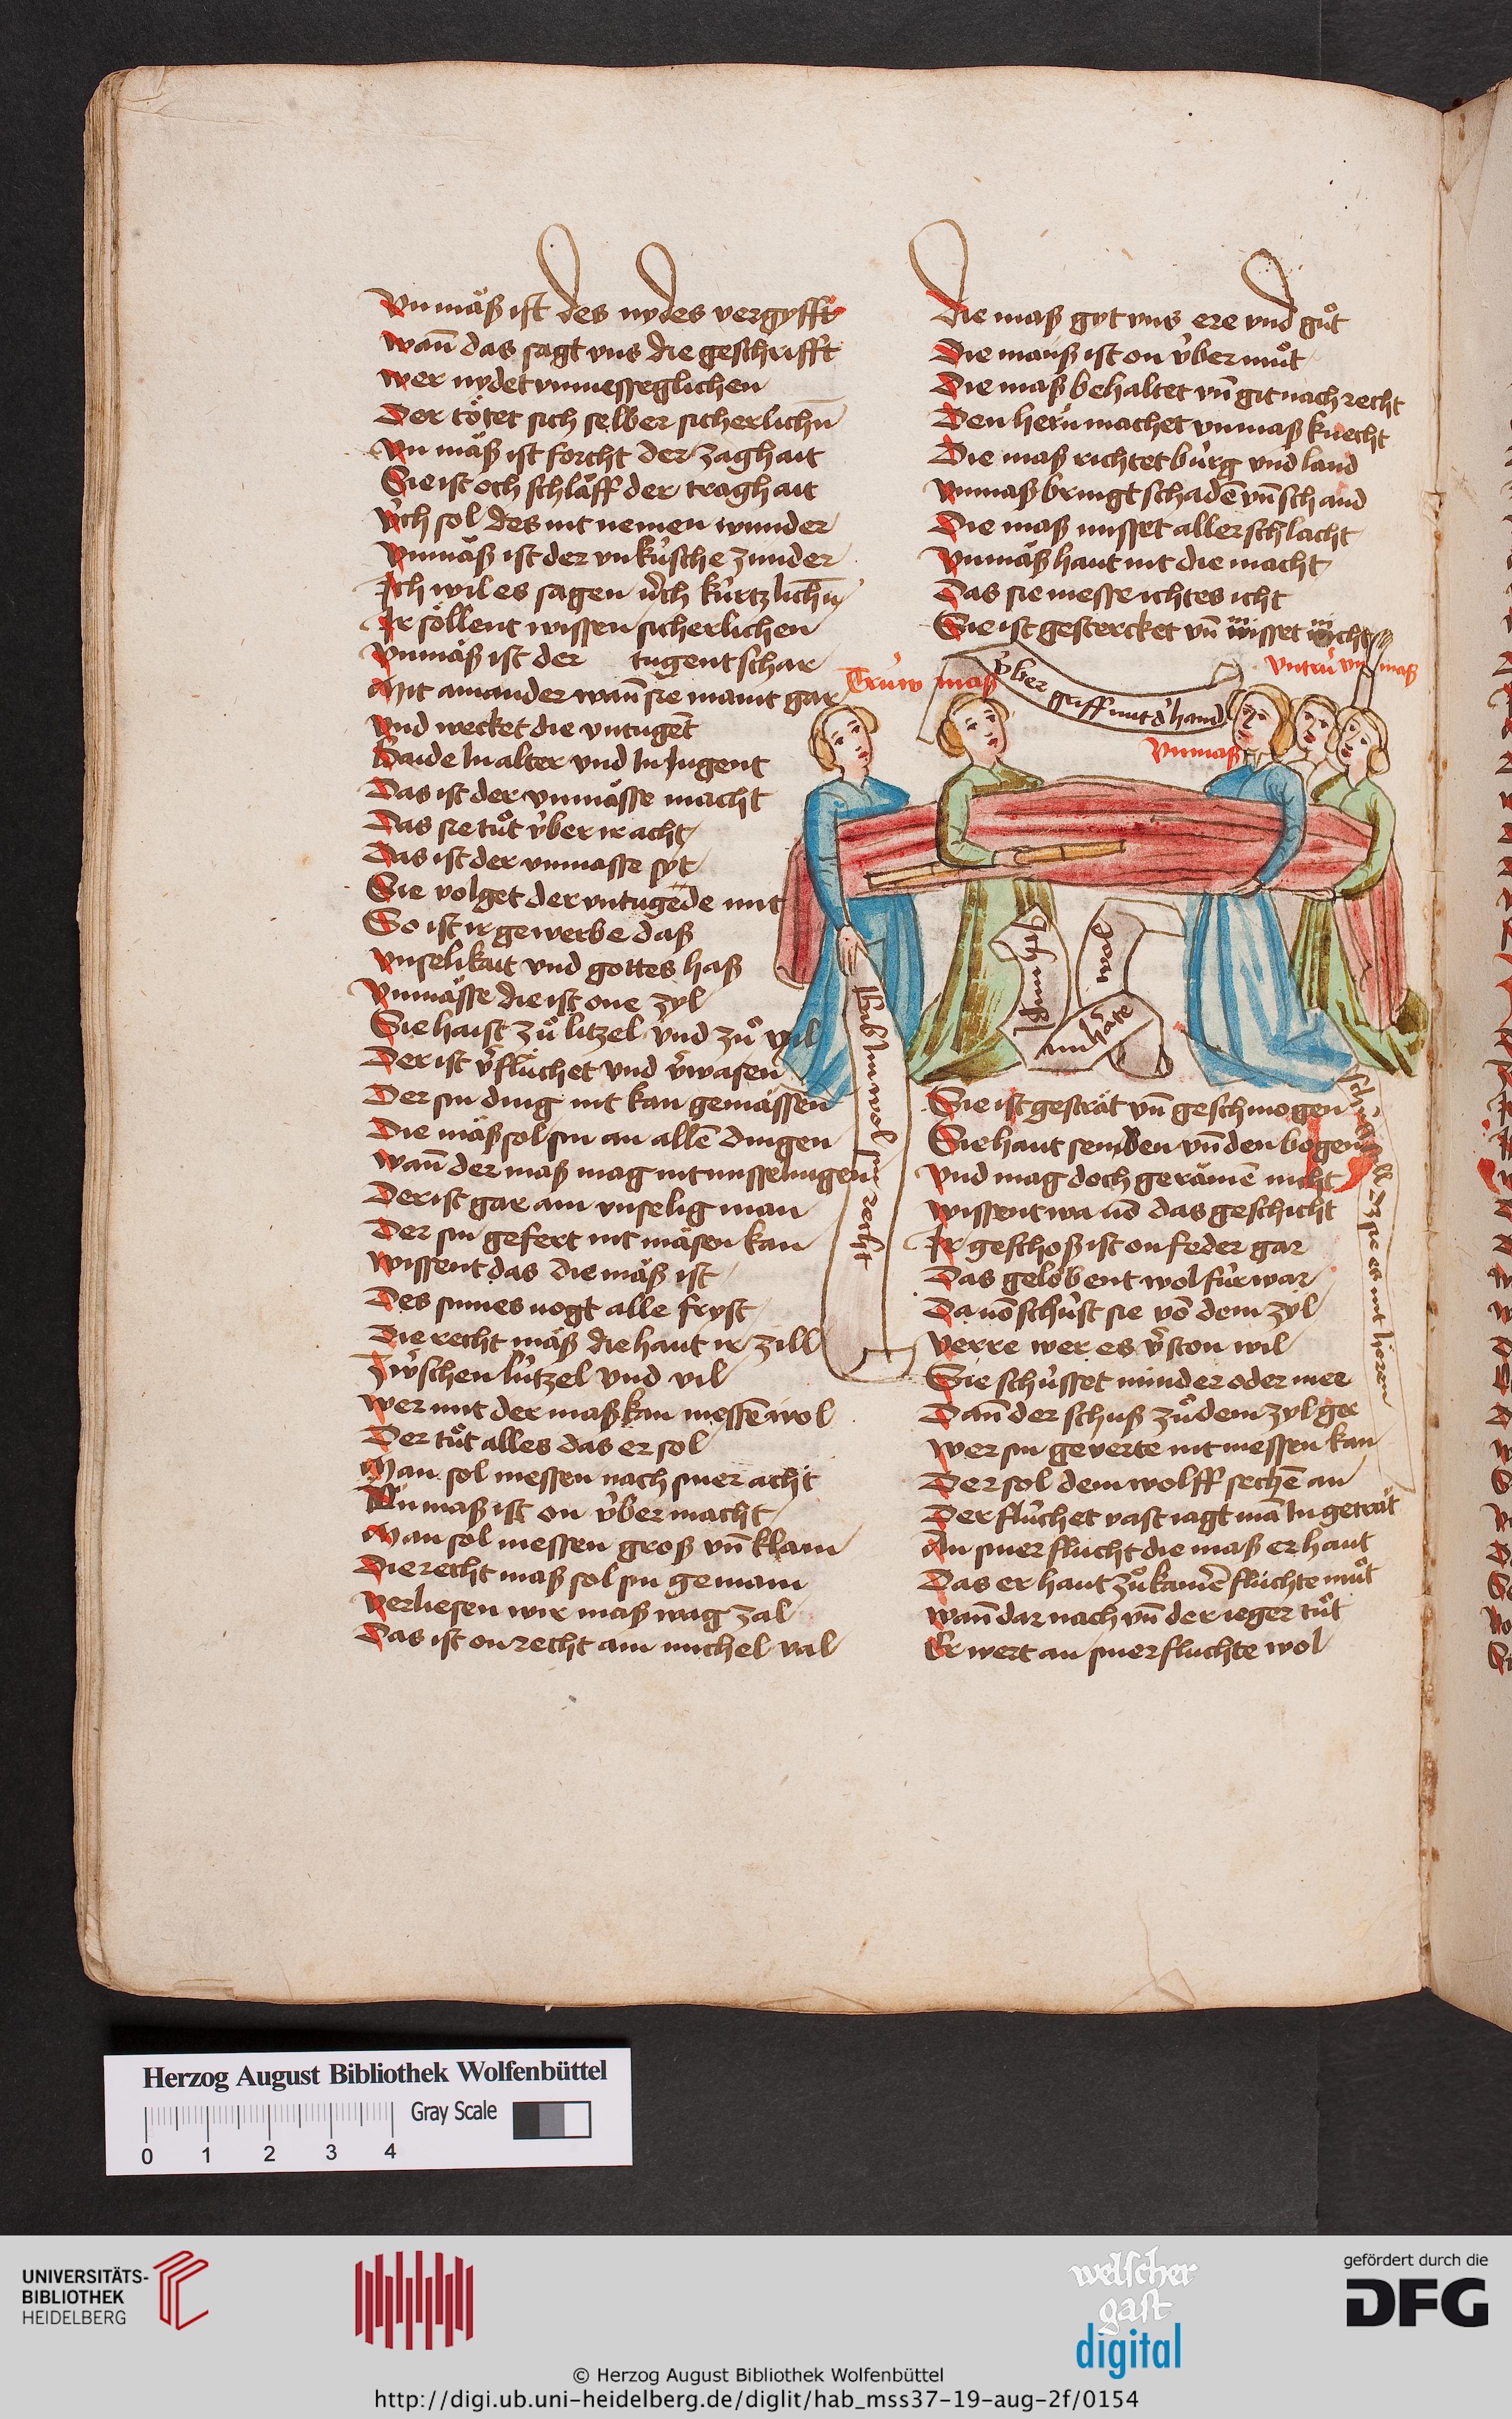 Vnmäß ist des nydes vergyfft
wann̄ das sagt vns die geschrifft
wer nydet vnmesseglichen
Der tötet sich selber sicherlichn̄
Vn mäß ist forcht der zaghait
Sie ist och schläff der traghait
v̈ch sol des nit nemen wunder
Vnmäß ist der vnküsche zunder
Ich wil es sagen üch kürtzlichn̄
Ir söllent wissen sicherlichen
Vnmäß ist der tugent schar
Mit ainander wann̄ sie maint gar
vnd wecket die vntugēt
Baide In alter vnd In Jugent
Das ist der vnmässe macht
Das sie tuͦt v̈ber ir acht
Das ist der vnmasse syt
Sie volget der vntugēde mit
So ist ir gewerbe daß
vnselikait vnd gottes haß
Vnmässe die ist one zyl
Sie haist zuͦ litzel vnd zuͦ vil
Der ist v̄flüchet vnd v̄wasen
Der sin ding nit kan gemässen
Die mäß sol sin an allē dingen
wann̄ der maß mag nit misselingen
Der ist gar ain vnselig man
Der sin gefert nit mäsen kan
wissent das die mäß ist
Des sinnes vogt alle fryst
Die recht mäß die haut ir zill
Zwschen lützel vnd vil
wer mit der maß kan messē wol
Der tuͦt alles das er sol
Man sol messen nach siner acht
Vnmaß ist on v̈ber macht
Man sol messen groß vn̄ klain
Die recht maß sol sin gemain
verliesen wir maß wag zal
Das ist on recht ain michel val
Die maß gyt vns ere vnd guͦt
Die mauß ist on v̈ber muͦt
Die maß behaltet vn̄ git nach recht
Den hern̄ machet vnmaß knecht
Die maß richtet bürg vnd land
vnmaß bringt schadē vn̄ schand
Die maß misset aller schlacht
Vnmäß haut nit die macht
Das sie messe ichtes icht
Sie ist gestercket vn̄ misset nicht
Trüw maß
v̈ber griff mit d' hand
vntrü vnmaß
Vnmaß
wol
hab In wol für recht
Sie ist gesträt vn̄ geschmogen
Sie haut senden vn̄ den bogen
vnd mag doch gerämē nicht
wissent wa vō das geschicht
Ir geschoß ist on feder gar
Das geloͤbent wol für war
Da vō schüst sie vō dem zyl
verre wer es v̄ston wil
Sie schüsset minder oder mer
Dann̄ der schuß zuͦ dem zyl ger
wer sin geverte nit messen kan
Der sol dem wolff sechē an
Der flüchet vast iagt mā In geträt
An siner flucht die maß er haut
Das er haut zuͦ kainē flüchte muͦt
wann̄ dar nach vn̄ der ieger tuͦt
Er wert an siner fluchte wol
Herzog August Bibliothek Wolfenbüttel
Gray Scale
0 1 2 3 4
UNIVERSITÄTS-
BIBLIOTHEK
HEIDELBERG
welscher
gast
digital
gefördert durch die
DFG
© Herzog August Bibliothek Wolfenbüttel
http://digi.ub.uni-heidelberg.de/diglit/hab_mss37-19-aug-2f/0154